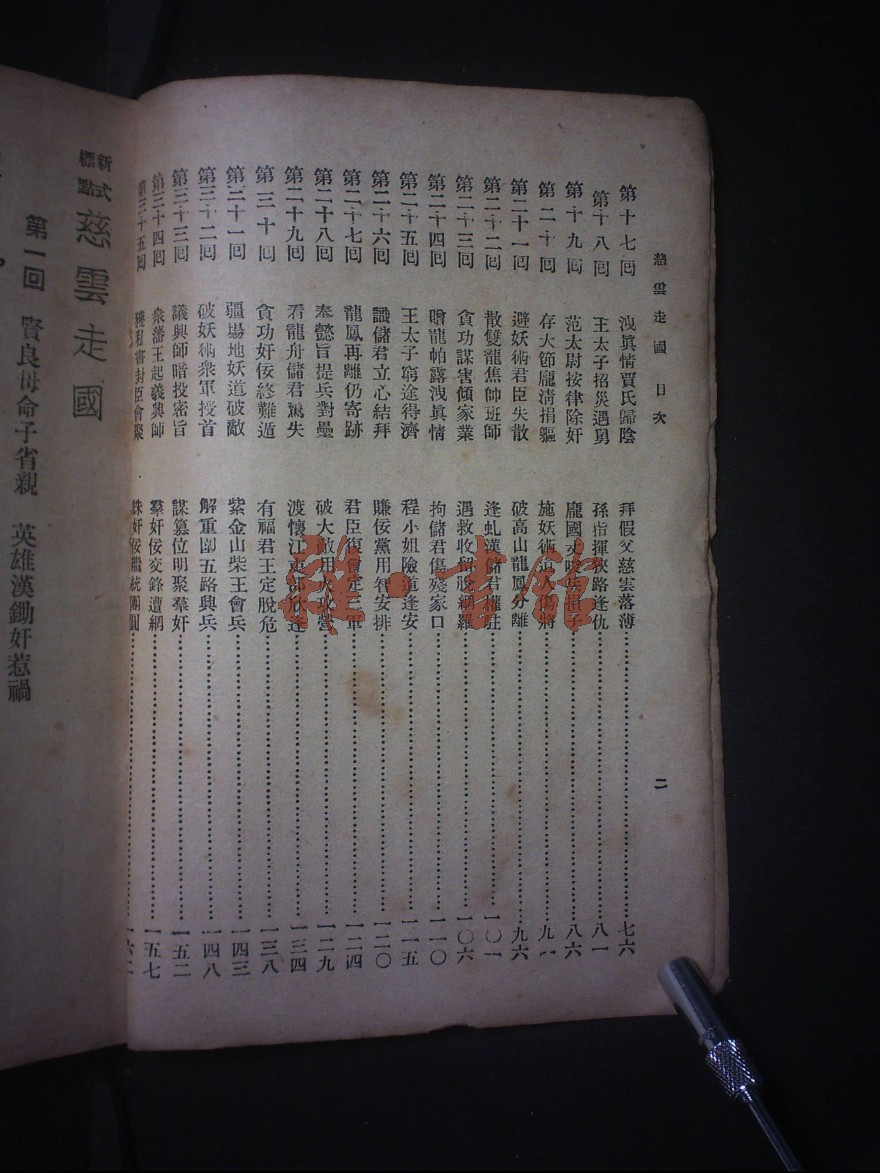 慈雲走國 目次
二
第十七回 洩眞情賈氏歸陰 拜假父慈雲落薄 七六
第十八回 王太子招災遇舅 孫指揮狹路逢仇 八一
第十九回 范太尉按律除奸 龐國丈唆兵損子 八六
第二十回 存大節龐清捐軀 施妖術追人傷將 九一
第二十一回 避妖術君臣失散 破高山龍鳳分離 九六
第二十二回 散雙龍焦帥班師 逢虬漢儲君權駐 一〇一
第二十三回 貪功謀害傾家業 遇救收留脫網羅 一〇六
第二十四回 贈龍帕露洩眞情 拘儲君傷殘家口 一一〇
第二十五回 王太子窮途得濟 程小姐險道逢安 一一五
第二十六回 識儲君立心結拜 賺佞黨用智安排 一二〇
第二十七回 龍鳳再離仍寄跡 君臣復會定三軍 一二四
第二十八回 奉懿旨提兵對壘 破大敵用火攻營 一二九
第二十九回 看龍舟儲君驚失 渡懷江東部欣逢 一三四
第三十回 貪功奸佞終難遁 有福君王定脫危 一三八
第三十一回 疆場地妖道破敵 紫金山柴王會兵 一四三
第三十二回 破妖術衆軍授首 解重圍五路興兵 一四八
第三十三回 議興師暗投密旨 謀篡位明聚羣奸 一五二
第三十四回 衆藩王起義興師 羣奸佞交鋒遭網 一五七
第三十五回 私書封臣會聚 誅奸佞繼統團圓 一六二
新式標點 慈雲走國
第一回 賢良母命子省親 英雄漢鋤奸惹禍